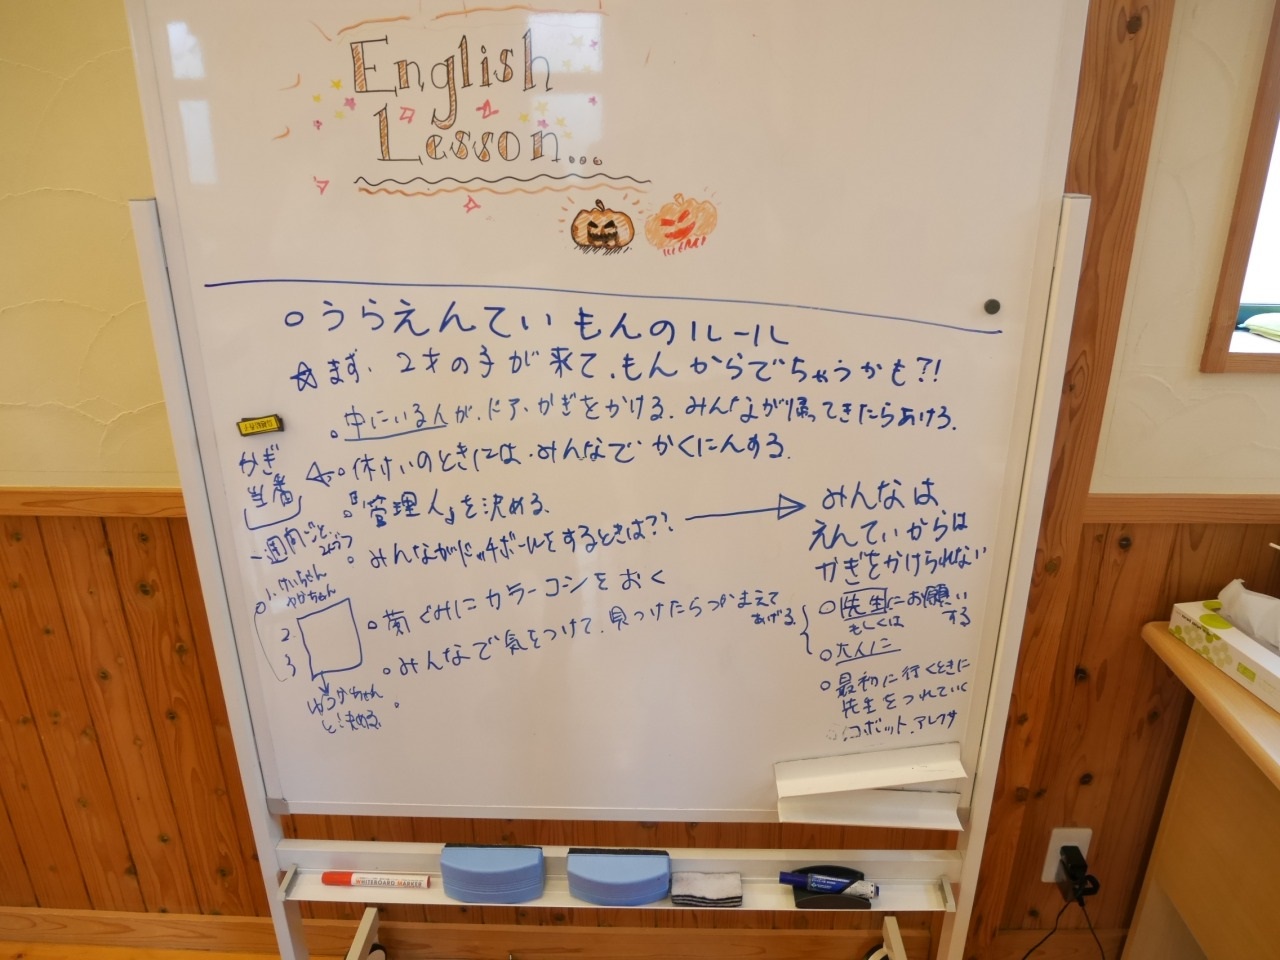 English
Lesson...
○うらえんていもんのルール
☆まず、2才の子が来て、もんからでちゃうかも?!
。中にいる人が、ドア、かぎをかける。みんなが帰ってきたらあける。
。休けいのときには、みんなでかくにんする。
。『管理人』を決める。
。みんながドッチボールをするときは??
。菊ぐみにカラーコンをおく
。みんなで気をつけて、見つけたらつかまえて
あげる。
かぎ
当番
一週間ごと。
2人ずつ
1、けいちゃん
2、
3
と決める。
みんなは
えんていからは
かぎをかけられない
○先生にお願い
する
もしくは
○大人に
○最初に行くときに
先生をつれていく
WHITEBOARD MARKER